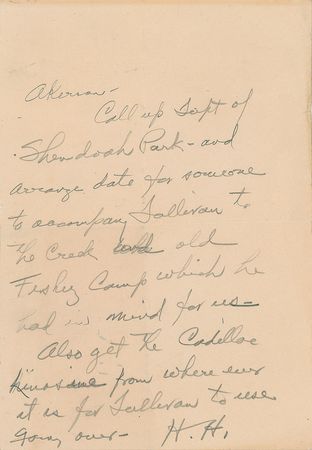 Akerson -
Call up Supt of
Shendoah Park - and
arrange date for someone
to accompany Sullivan to
the Creek old
Fishing Camp which he
had in mind for us -
Also get the Cadillac
from where ever
it is for Sullivan to use
going over - H. H.